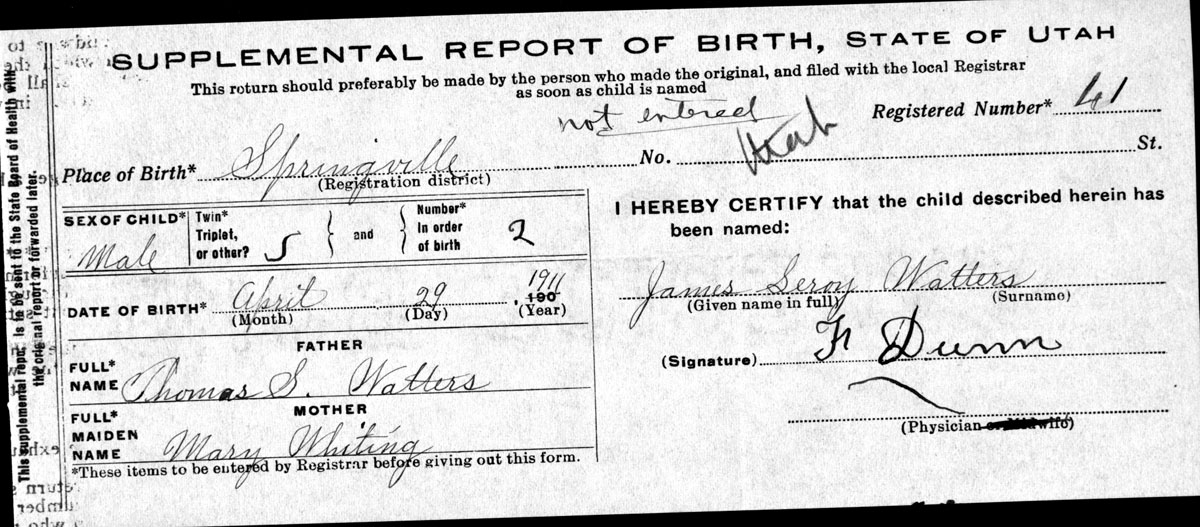 SUPPLEMENTAL REPORT OF BIRTH, STATE OF UTAH
This return should preferably be made by the person who made the original, and filed with the local Registrar
as soon as child is named
not entered
Registered Number* 41
Place of Birth* Springville No. Utah St.
(Registration district)
SEX OF CHILD* Male
Twin* Triplet, or other? and Number* In order of birth 2
DATE OF BIRTH* April 29 1911 , 190
(Month) (Day) (Year)
FATHER
FULL* NAME Thomas S. Watters
MOTHER
FULL* MAIDEN NAME Mary Whiting
*These items to be entered by Registrar before giving out this form.
I HEREBY CERTIFY that the child described herein has
been named:
James Leroy Watters
(Given name in full) (Surname)
(Signature) F Dunn
(Physician or Midwife)
This supplemental repo is to be sent to the State Board of Health with
the original report or forwarded later.